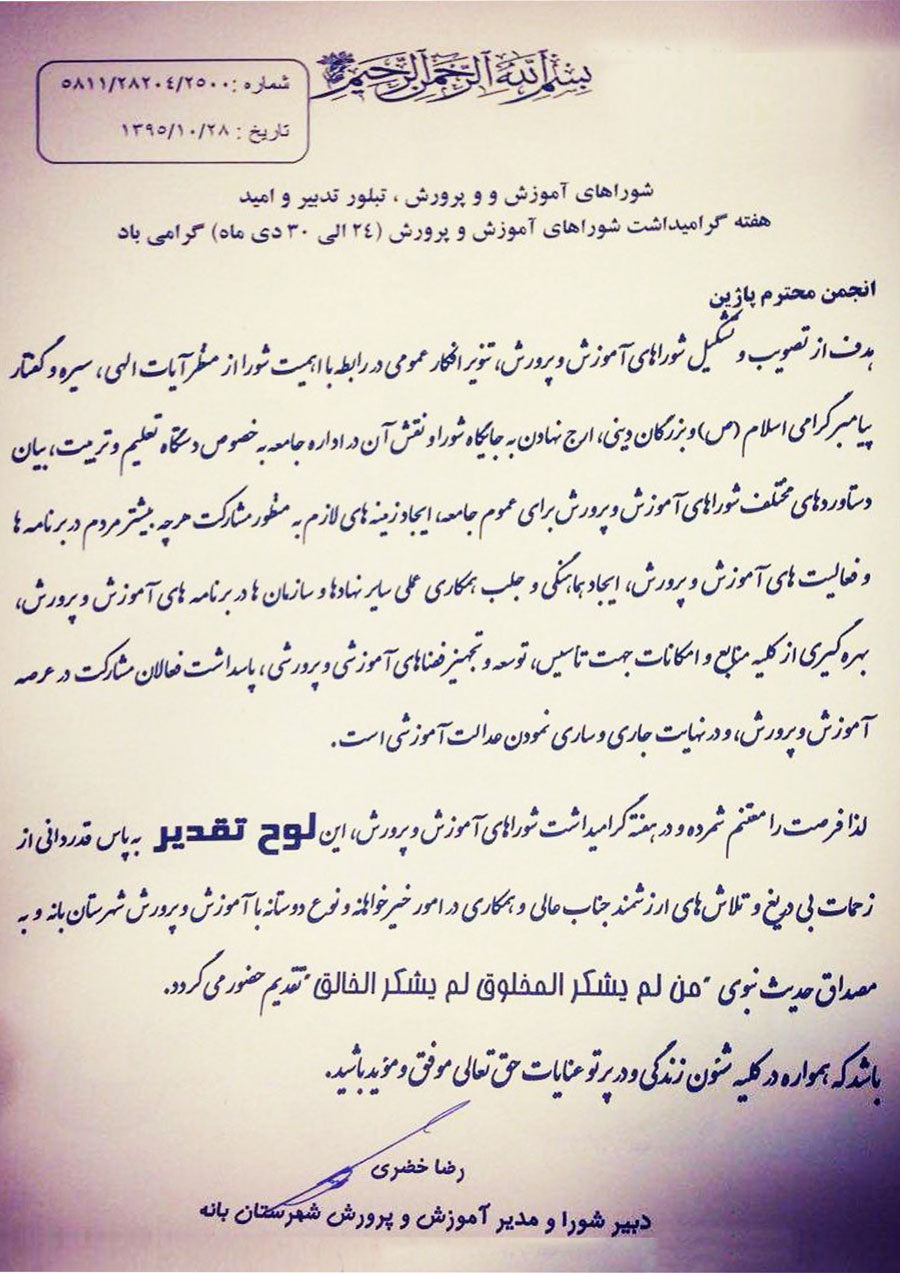 بسم الله الرحمن الرحیم
شماره :٥٨١١/٢٨٢٠٤/٢٥٠٠
تاریخ : ١٣٩٥/١٠/٢٨
شوراهای آموزش و و پرورش ، تبلور تدبیر و امید
هفته گرامیداشت شوراهای آموزش و پرورش (٢٤ الی ٣٠ دی ماه) گرامی باد
انجمن محترم پاژین
هدف از تصویب و تشکیل شوراهای آموزش و پرورش، تنویر افکار عمومی در رابطه با اهمیت شورا از منظر آیات الهی، سیره و گفتار
پیامبر گرامی اسلام (ص) و بزرگان دینی، ارج نهادن به جایگاه شورا و نقش آن در اداره جامعه به خصوص دستگاه تعلیم و تربیت، بیان
دستاوردهای مختلف شوراهای آموزش و پرورش برای عموم جامعه، ایجاد زمینه های لازم به منظور مشارکت هرچه بیشتر مردم در برنامه ها
و فعالیت های آموزش و پرورش، ایجاد هماهنگی و جلب همکاری علی سایر نهادها و سازمان ها در برنامه های آموزش و پرورش،
بهره گیری از کلیه منابع و امکانات جهت تاسیس، توسعه و تجهیز فضاهای آموزشی و پرورشی، پاسداشت فعالان مشارکت در عرصه
آموزش و پرورش، و در نهایت جاری و ساری نمودن عدالت آموزشی است.
لذا فرصت را مغتنم شمرده و در هفته گرامیداشت شوراهای آموزش و پرورش، این لوح تقدیر به پاس قدردانی از
زحمات بی دریغ و تلاش های ارزشمند جناب عالی و همکاری در امور خیرخواهانه و نوع دوستانه با آموزش و پرورش شهرستان بانه و به
مصداق حدیث نبوی "من لم یشکر المخلوق لم یشکر الخالق" تقدیم حضور می گردد.
باشد که همواره در کلیه شئون زندگی و در پرتو عنایات حق تعالی موفق و مؤید باشید.
رضا خضری
دبیر شورا و مدیر آموزش و پرورش شهرستان بانه